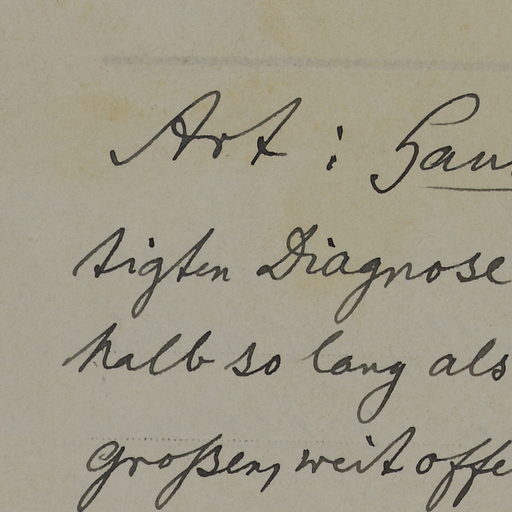 Art : Gau
tigten Diagnose
halb so lang als
großen, weit offe